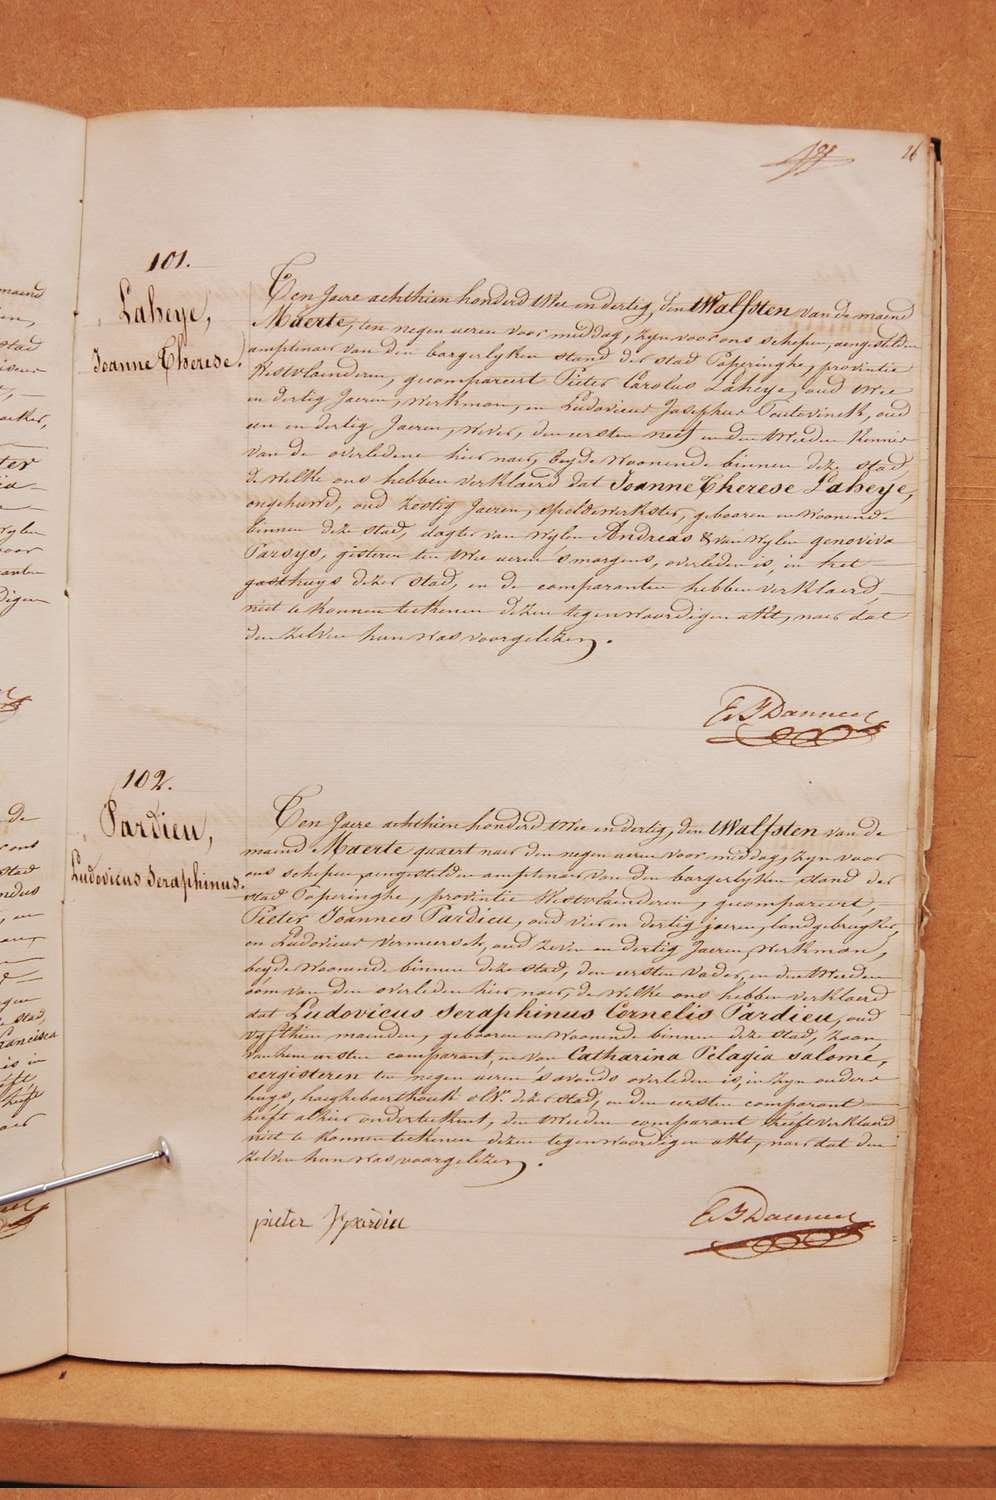 26
101.
Laheye,
Joanne Therese.
Ten Jaere achthien honderd twee en dertig, den twalfsten van de maend
Maerte, ten negen ueren voor middag, zyn voor ons schepen, aengestelden
amptenaer van den borgerlyken stand der stad Poperinghe, provintie
Westvlaenderen, gecompareert Pieter Carolus Laheye, oud twee
en dertig Jaeren, werkman, en Ludovicus Josephus Toutevinck, oud
een en dertig Jaeren, wever, den eersten neef en den tweeden kennis
van de overledene hier naer, beyde woonende binnen deze stad,
de welke ons hebben verklaerd dat Joanne Therese Laheye,
ongehuwd, oud zestig Jaeren, speldewerkster, gebooren en woonende
binnen deze stad, dogter van wylen Andreas & van wylen genoviva
Parsys, gisteren ten twee ueren s'morgens, overleden is, in het
gasthuys dezer stad, en de comparanten hebben verklaerd,
niet te konnen teekenen dezen tegenwoordigen akt, naer dat
den zelven hun was voorgelezen.
102.
Pardieu,
Ludovicus Seraphinus.
Ten Jaere achthien honderd twee en dertig, den twalfsten van de
maend Maerte quaert naer den negen ueren voor middag, zyn voor
ons schepen, aengestelden amptenaer van den borgerlyken stand der
stad Poperinghe, provintie Westvlaenderen, gecompareert,
Pieter Joannes Pardieu, oud vier en dertig jaeren, landgebruyker,
en Ludovicus Vermeersch, oud zeven en dertig Jaeren, werkman,
beyde woonende binnen deze stad, den eersten vader, en den tweeden
oom van den overleden hier naer, de welke ons hebben verklaerd
dat Ludovicus Seraphinus Cornelis Pardieu, oud
vyfthien maenden, gebooren en woonende binnen deze stad, zoon
van hem eersten comparant, en van Catharina Pelagia Salome,
eergisteren ten negen ueren s'avonds overleden is, in zyn ouders
huys, haeghebaerthouk dezer stad, en den eersten comparant
heeft alhier onderteekent, den tweeden comparant heeft verklaerd
niet te konnen teekenen dezen tegenwoordigen akt, naer dat den
zelven hun was voorgelezen.
pieter J pardieu